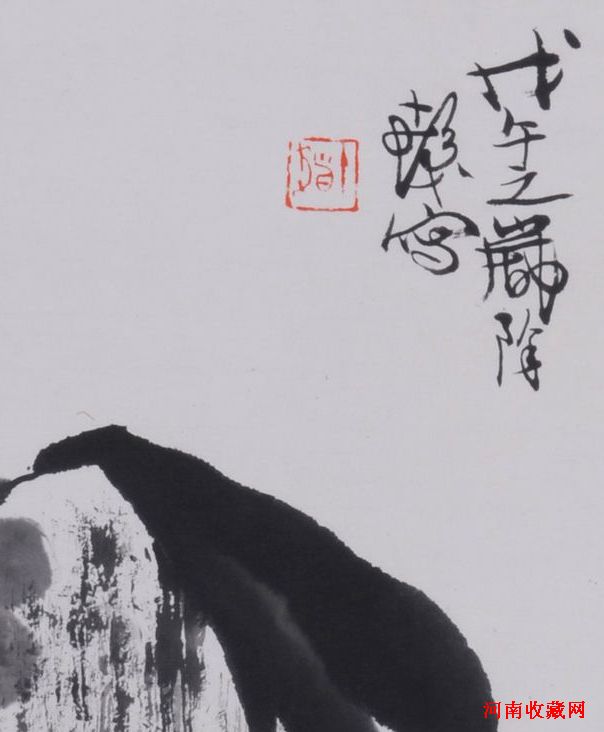 戊午之歲除
寫
河南收藏网